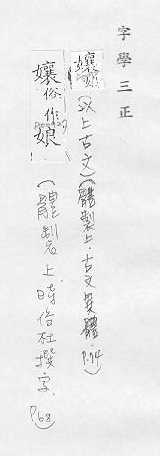 字學三正
孃娘(以上古文)(體製上·古文異體.P.74)
孃俗作娘(體製上.時俗杜撰字.P.68)